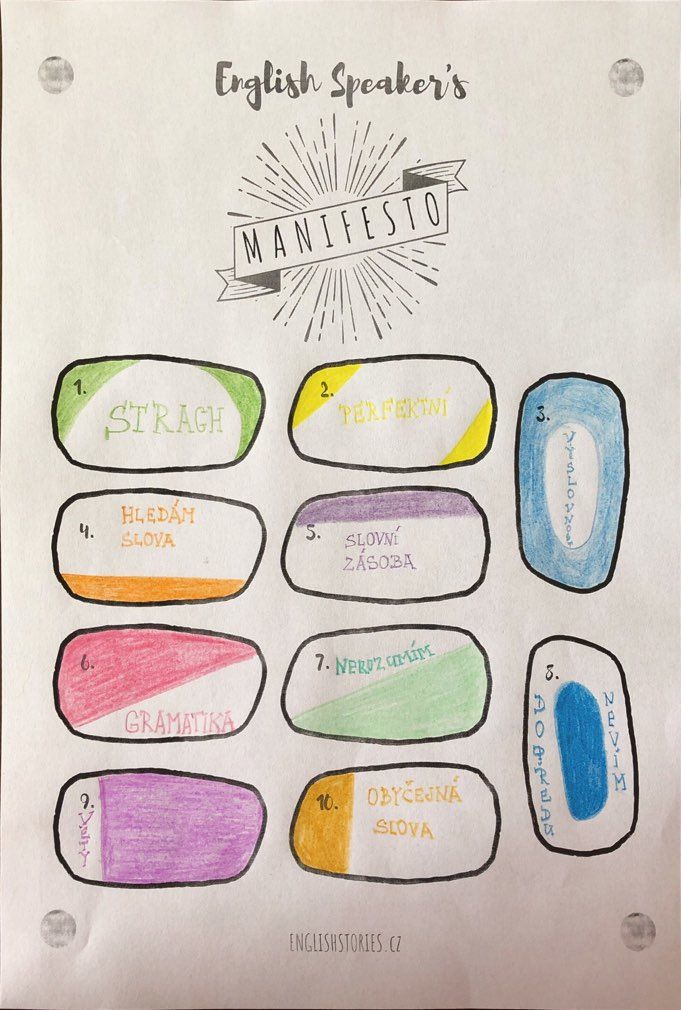 English Speaker's
MANIFESTO
1.
STRACH
2.
PERFEKTNÍ
3.
VÝSLOVNOST
4.
HLEDÁM
SLOVA
5.
SLOVNÍ
ZÁSOBA
6.
GRAMATIKA
7.
NEROZUMÍM
8.
NEVÍM
DOPŘEDU
9.
VĚTY
10.
OBYČEJNÁ
SLOVA
ENGLISHSTORIES.CZ